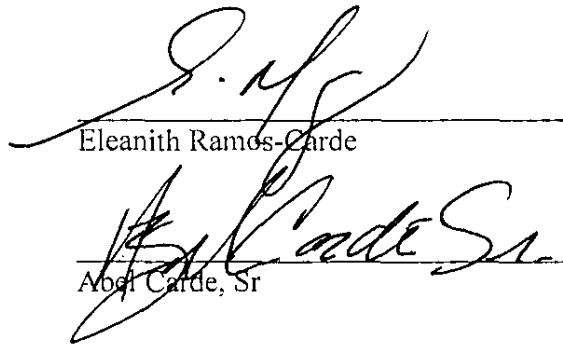 Eleanith Ramos-Carde
Abel Carde Sr.
Abel Carde, Sr